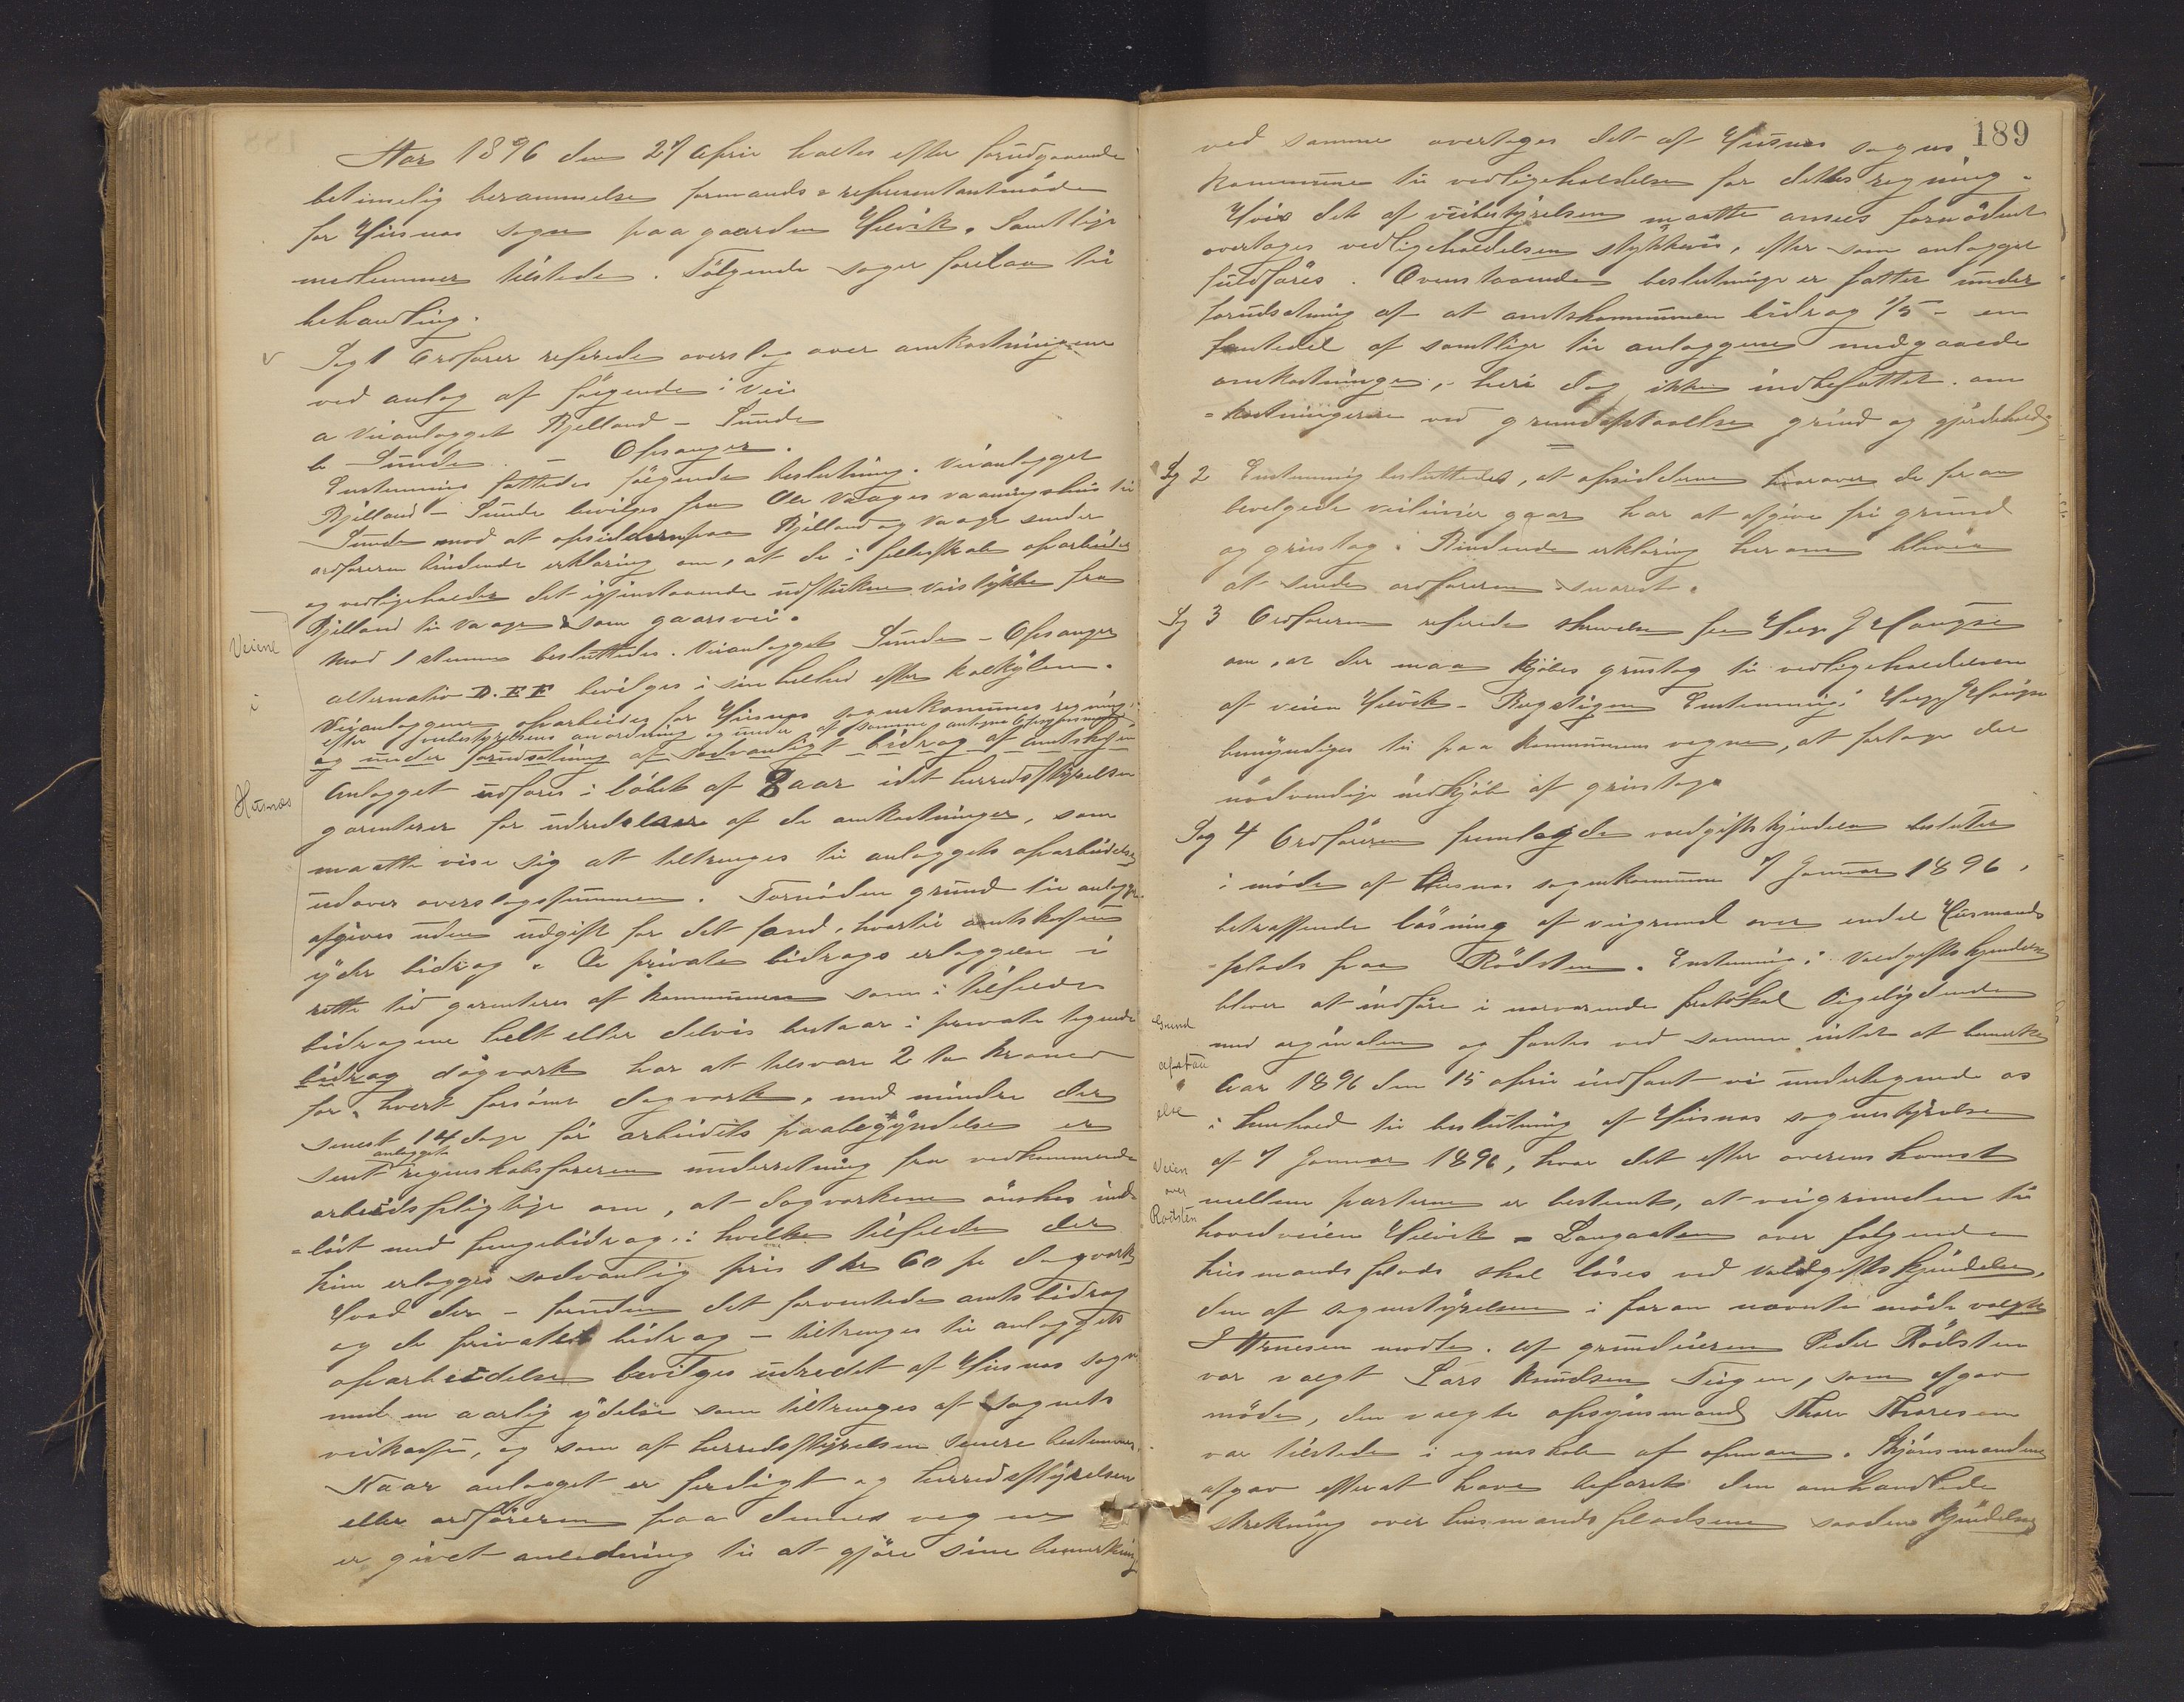 Aar 1896 den 27 april holtes efter forudgaaende
betimelig berammelse formands & representantmøde
for Husnæs sogn paa gaarden Helvik. Samtlige
medlemmer tilstede. Følgende sager forelaa til
behandling.
Sag 1 Ordfører refererede overslag over omkostningerne
ved anlæg af følgende: Vei
a Veianlægget Kjelland - Sunde
b Sunde - Opsanger.
Enstemmig fattedes følgende beslutning. Veianlægget
Kjelland - Sunde bevilges fra Ole Vaages vaaningshus til
Sunde mod at opsidderne paa Kjelland og Vaage sender
ordføreren bindende erklæring om, at de i fælleskab oparbeider
og vedligeholder det igjenstaaende udstukne veistykke fra
Kjelland til Vaage som gaarsvei.
Mod 1 stemme besluttedes. Veianlægget Sunde - Opsanger
alternativ D.E.F. bevilges i sin helhed efter kalkylen.
Veianlæggene oparbeides for Husnæs sognekommunes regning
efter veibestyrelsens anordning og under af samme antagne opsynsmænd
og under forudsætning af sedvanligt bidrag af amtskassen
Anlægget udføres i løbet af 8 aar idet herredsstyrelsen
garenterer for udredelsen af de omkostninger, som
maatte vise sig at tiltrenges til anlæggets oparbeidelse
udover overslagssummen. Fornøden grund til anlægget
afgives uden udgift for det fond, hvortil amtskassen
yder bidrag. De private bidrags erlæggelse i
rette tid garenteres af kommunen som i tilfælde
bidragene helt eller delvis bestaar i private tegnede
bidrag dagværk har at tilsvare 2 to kroner
for hvert forsømt dagværk, med mindre der
senest 14 dage før arbeidets paabegyndelse er
anlægget
sendt regnskabsføreren underretning fra vedkommende
arbeidspligtige om, at dagværkene ønskes ind-
-løst med pengebidrag, i hvilke tilfælde der
kun erlægges sedvanlig pris 1 kr 60 pr dagværk
Hvad der - foruden det forventede amtsbidrag
og de private bidrag - tiltrenges til anlæggets
oparbeidelse bevilges udredet af Husnæs sogn
med en aarlig ydelse som tiltrenges af sognets
veikasse, og som af herredsstyrelsen senere bestemmes.
Naar anlægget er færdigt og herredsstyrelsen
eller ordføreren paa dennes vegne
er givet anledning til at gjøre sine bemerkning
Veiene
i
Husnæs
189
ved samme overtages det af Husnæs sogns
kommune til vedligeholdelse for dettes regning.
Hvis det af veibestyrelsen maatte ansees fornødent
overtages vedligeholdelsen stykkevis, efter som anlægget
fuldføres. Ovenstaaende beslutninger er fattet under
forudsetning af at amtskommunen bidrag 1/5 - en
femtedel af samtlige til anlæggene medgaaede
omkostninger, heri dog ikke indbefattet om
-kostningerne ved grundafstaaelse grind og gjerdehold
Sag 2 Enstemmig besluttedes, at opsidderne hvorover de foran
bevilgede veilinier gaar har at afgive fri grund
og grustag. Bindende erklæring herom bliver
at sende ordføreren snarest.
Sag 3 Ordføreren refererede skrivelse fra
om, at der maa kjøbes grustag til vedligeholdelsen
af veien Helvik - Enstemmig:
bemyndiges til paa kommunens vegne, at foretage det
nødvendige indkjøb af grustag
Sag 4 Ordføreren fremlagde voldgiftskjendelsen besluttet
i møde af Husnæs sognekommune 7 Januar 1896,
betreffende løsning af veigrund over endel Husmands
-plads paa Rødsten. Enstemmig: Voldgiftskjendelsen
bliver at indføre i nærværende protokol ligelydende
med orginalen og fantes ved samme intet at bemerke
Aar 1896 den 15 april indfant vi undertegnede os
i henhold til beslutning af Husnæs sognestyrelse
af 7 Januar 1896, hvor det efter overenskomst
mellem parterne er bestemt, at veigrunden til
hovedveien Helvik - over følgende
husmandsplads skal løses ved voldgiftskjendelse,
den af sognestyrelsen i foran nævnte møde valgte
mødte. Af grundeieren Peder Rødsten
var valgt Lars Knudsen Teigen, som ogsaa
mødte, den valgte opsynsmand Thore Thoresen
var tilstede i egenskab af opman. Skjønsmændene
afgav efterat have befaret den omhandlede
strekning over husmandspladsene saadan kjendelse
Grund
afstaa
else
Veien
over
Rødsten